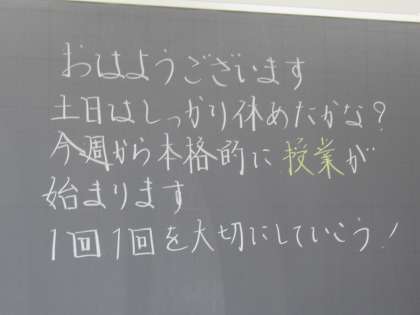 おはようございます
土日はしっかり休めたかな?
今週から本格的に授業が
始まります
1回1回を大切にしていこう!